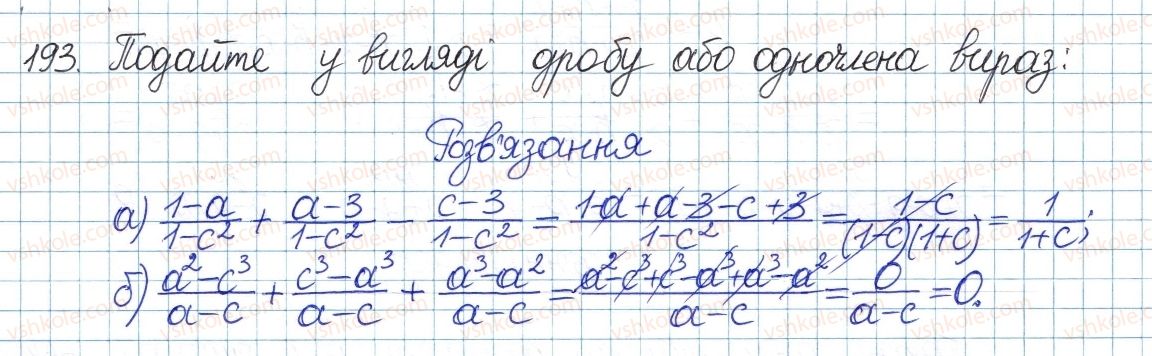 193. Подайте у вигляді дробу або одночлена вираз:
Розв'язання
а) (1-a)/(1-c²) + (a-3)/(1-c²) - (c-3)/(1-c²) = (1-a+a-3-c+3)/(1-c²) = (1-c)/((1-c)(1+c)) = 1/(1+c);
б) (a²-c³)/(a-c) + (c³-a³)/(a-c) + (a³-a²)/(a-c) = (a²-c³+c³-a³+a³-a²)/(a-c) = 0/(a-c) = 0.